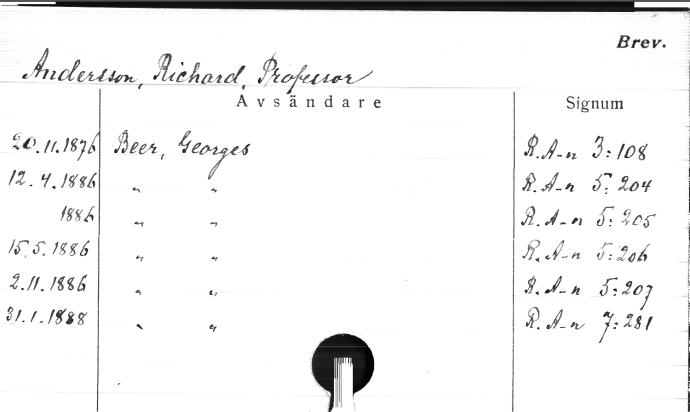 Brev.
Andersson, Richard, Professor
Avsändare Signum
20.11.1876 Beer, Georges R.A-n 3:108
12.4.1886 " " R.A-n 5:204
1886 " " R.A-n 5:205
15.5.1886 " " R.A-n 5:206
2.11.1886 " " R.A-n 5:207
31.1.1888 " " R.A-n 7:281